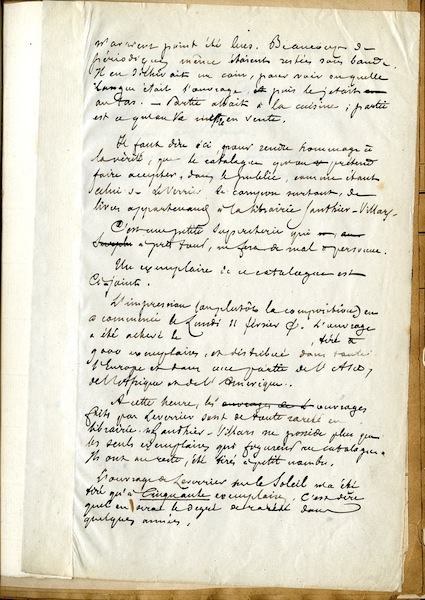 n'avaient point été lues. Beaucoup de
périodiques même étaient restés sous bande.
Il en déchirait un coin, pour voir en quelle
langue était l'ouvrage et puis le jetait
au tas. — Partie allait à la cuisine; partie
est ce qu'on va mettre en vente.
Il faut dire ici pour rendre hommage à
la vérité, que le catalogue qu'on prétend
faire accepter, dans le public, comme étant
celui de Le Verrier se compose surtout, de
livres appartenant à la librairie Gauthier-Villars.
C'est une petite supercherie qui
après tout, ne fera de mal à personne.
Un exemplaire de ce catalogue est
ci-joint.
L'impression (ou plutôt la composition) en
a commencé le Lundi 11 février. L'ouvrage
a été achevé le , tiré à
9000 exemplaires, et distribué dans toute
l'Europe et dans une partie de l'Asie,
de l'Afrique et de l'Amérique.
A cette heure, les ouvrages
faits par Leverrier sont de toute rareté en
librairie. Gauthier-Villars ne possède plus que
les seuls exemplaires qui figurent au catalogue.
Ils ont au reste, été tirés à petit nombre.
L'ouvrage de Leverrier sur le Soleil n'a été
tiré qu'à Cinquante exemplaires. C'est dire
quel en sera le degré de rareté dans
quelques années.